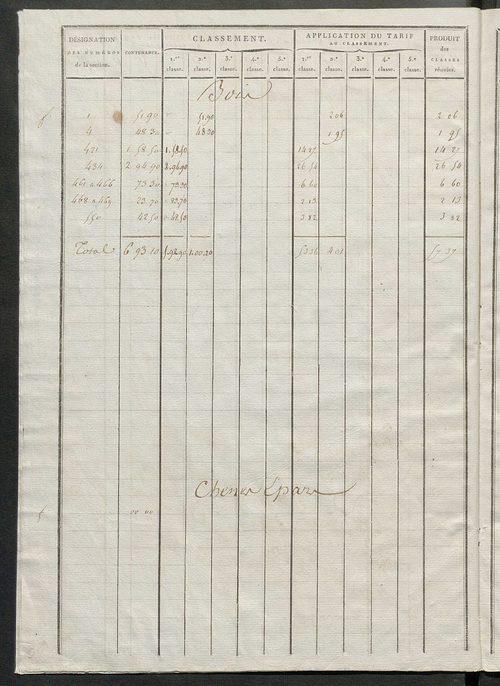 DÉSIGNATION DES NUMÉROS de la section.
CONTENANCE.
CLASSEMENT.
1.re classe. 2.e classe. 3.e classe. 4.e classe. 5.e classe.
APPLICATION DU TARIF AU CLASSEMENT.
1.re classe. 2.e classe. 3.e classe. 4.e classe. 5.e classe.
PRODUIT des CLASSES réunies.
Bois
1 51.90 51.90 2 06 2 06
4 48 30 48 30 1 95 1 95
421 1 58 50 1.58.50 14 27 14 27
434 2 94 90 2.94.90 26 54 26 54
461 a 466 73 30 73.30 6 60 6 60
468 a 469 23 70 23.70 2 13 2 13
550 42 50 42.50 3 82 3 82
Total 6 93 10 5.92.90 1.00.20 53 36 4 01 57 37
Chenes Épars
00 00